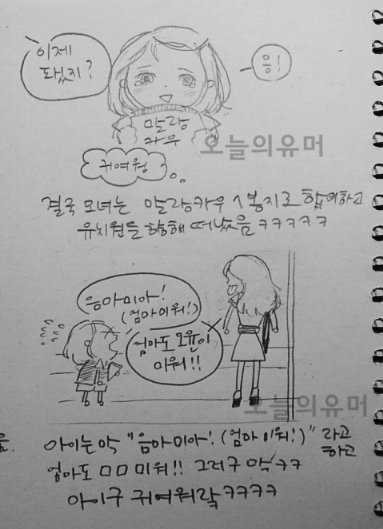 이제
됐지?
응!
말랑
카우
오늘의유머
귀여웡
결국 모녀는 말랑카우 1봉지로 합의하고
유치원을 향해 떠났음ㅋㅋㅋㅋㅋ
음아미아!
(엄마 미워!)
엄마도 모윤이
미워!!
오늘의유머
아이는 막 "음아미아! (엄마 미워!)" 라고
하고
엄마도 ㅁㅁ 미워!! 그러구 막ㅋㅋ
아이구 귀여워랔ㅋㅋㅋㅋ